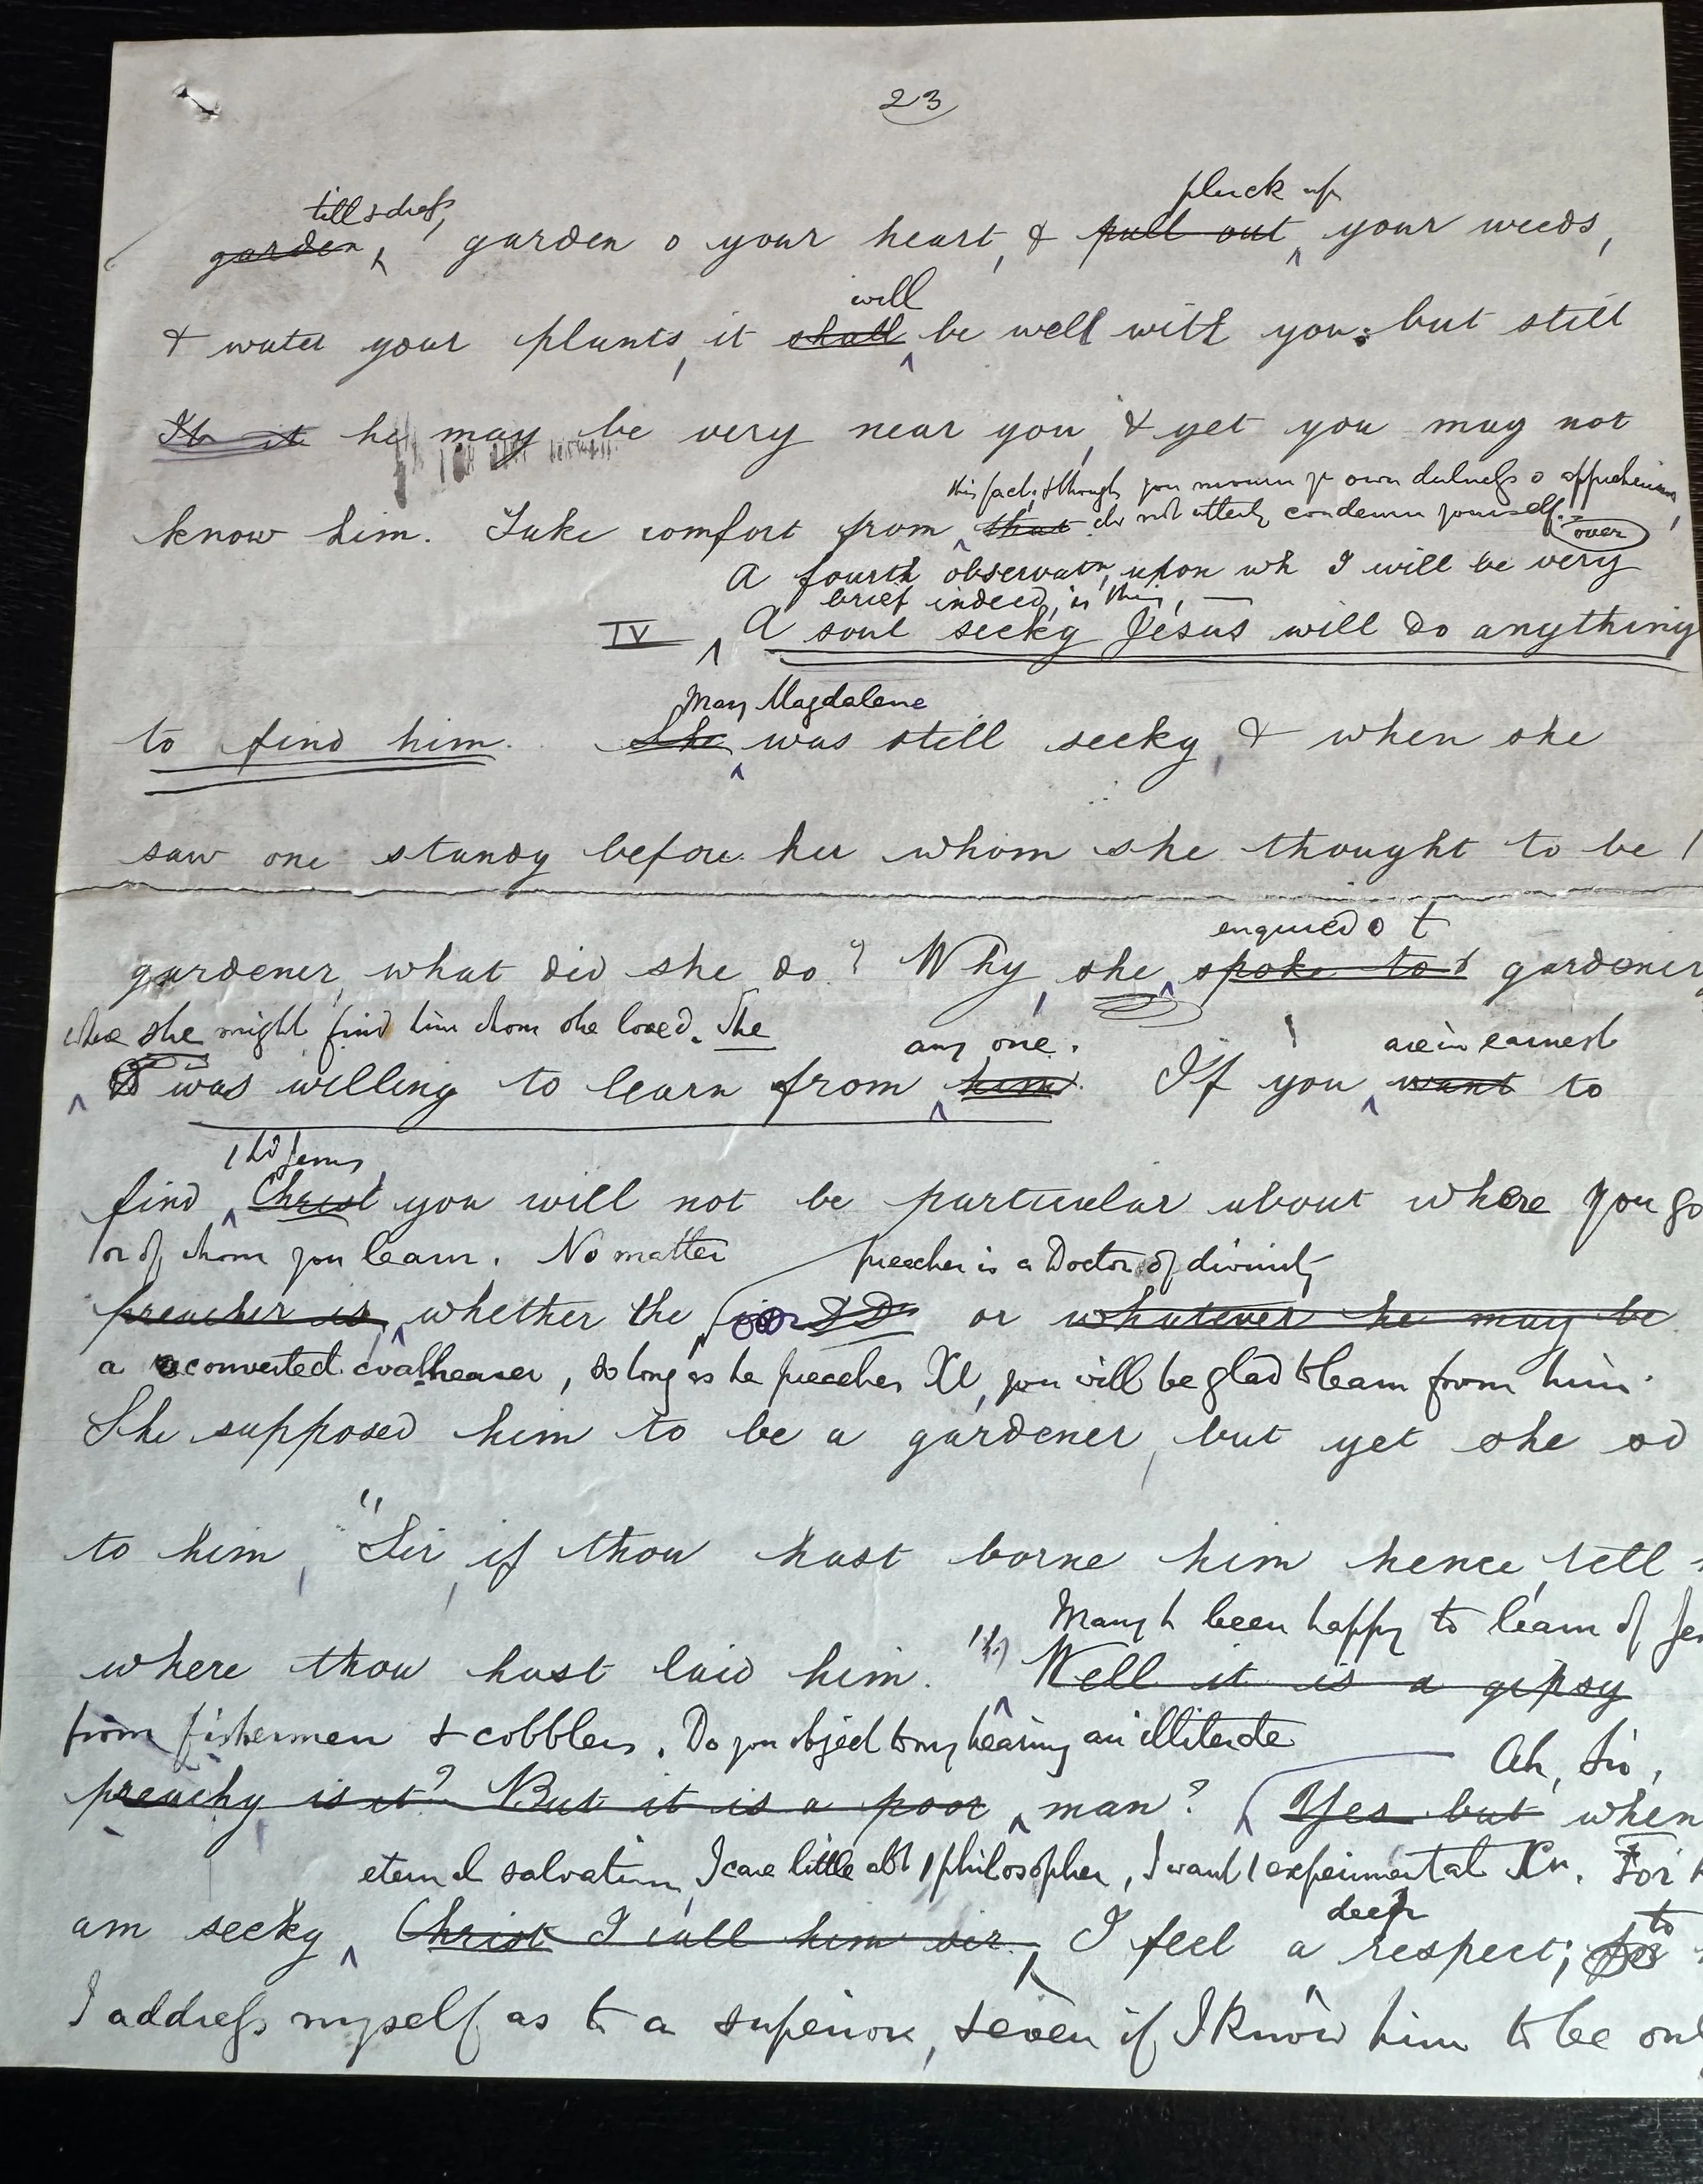 23
till & dress,
garden, garden o your heart, & pull out your weeds,
pluck up
& water your plants, it shall be well with you: but still
will
It it he may be very near you, & yet you may not
this fact, & though you mourn yr own dulness o apprehension,
know him. Take comfort from that do not utterly condemn yourself.
over
A fourth observatn, upon wh I will be very
brief indeed, is this, —
IV A soul seekg Jesus will do anything
Mary Magdalene
to find him. She was still seekg, & when she
saw one standg before her whom she thought to be /
enquired o t
gardener, what did she do? Why, she spoke to t gardener
where she might find him whom she loved. She
any one. are in earnest
was willing to learn from him. If you want to
find Christ you will not be particular about where you go
or of whom you learn. No matter preacher is a Doctor of divinity
preacher is, whether the or DD or whatever he may be
a converted coalheaver, so long as he preaches Xt, you will be glad to learn from him.
She supposed him to be a gardener, but yet she sd
to him, "Sir, if thou hast borne him hence, tell
Many h been happy to learn of
where thou hast laid him." Well it is a gipsy
from fishermen & cobblers. Do you object to my hearing an illiterate
Ah, Sir,
preachg is it? But it is a poor man? Yes but when
eternal salvation, I care little abt / philosopher, I want / experimental Xn. For
deep
am seekg Christ I call him sir. I feel a respect; to
I address myself as to a superior, & even if I know him to be